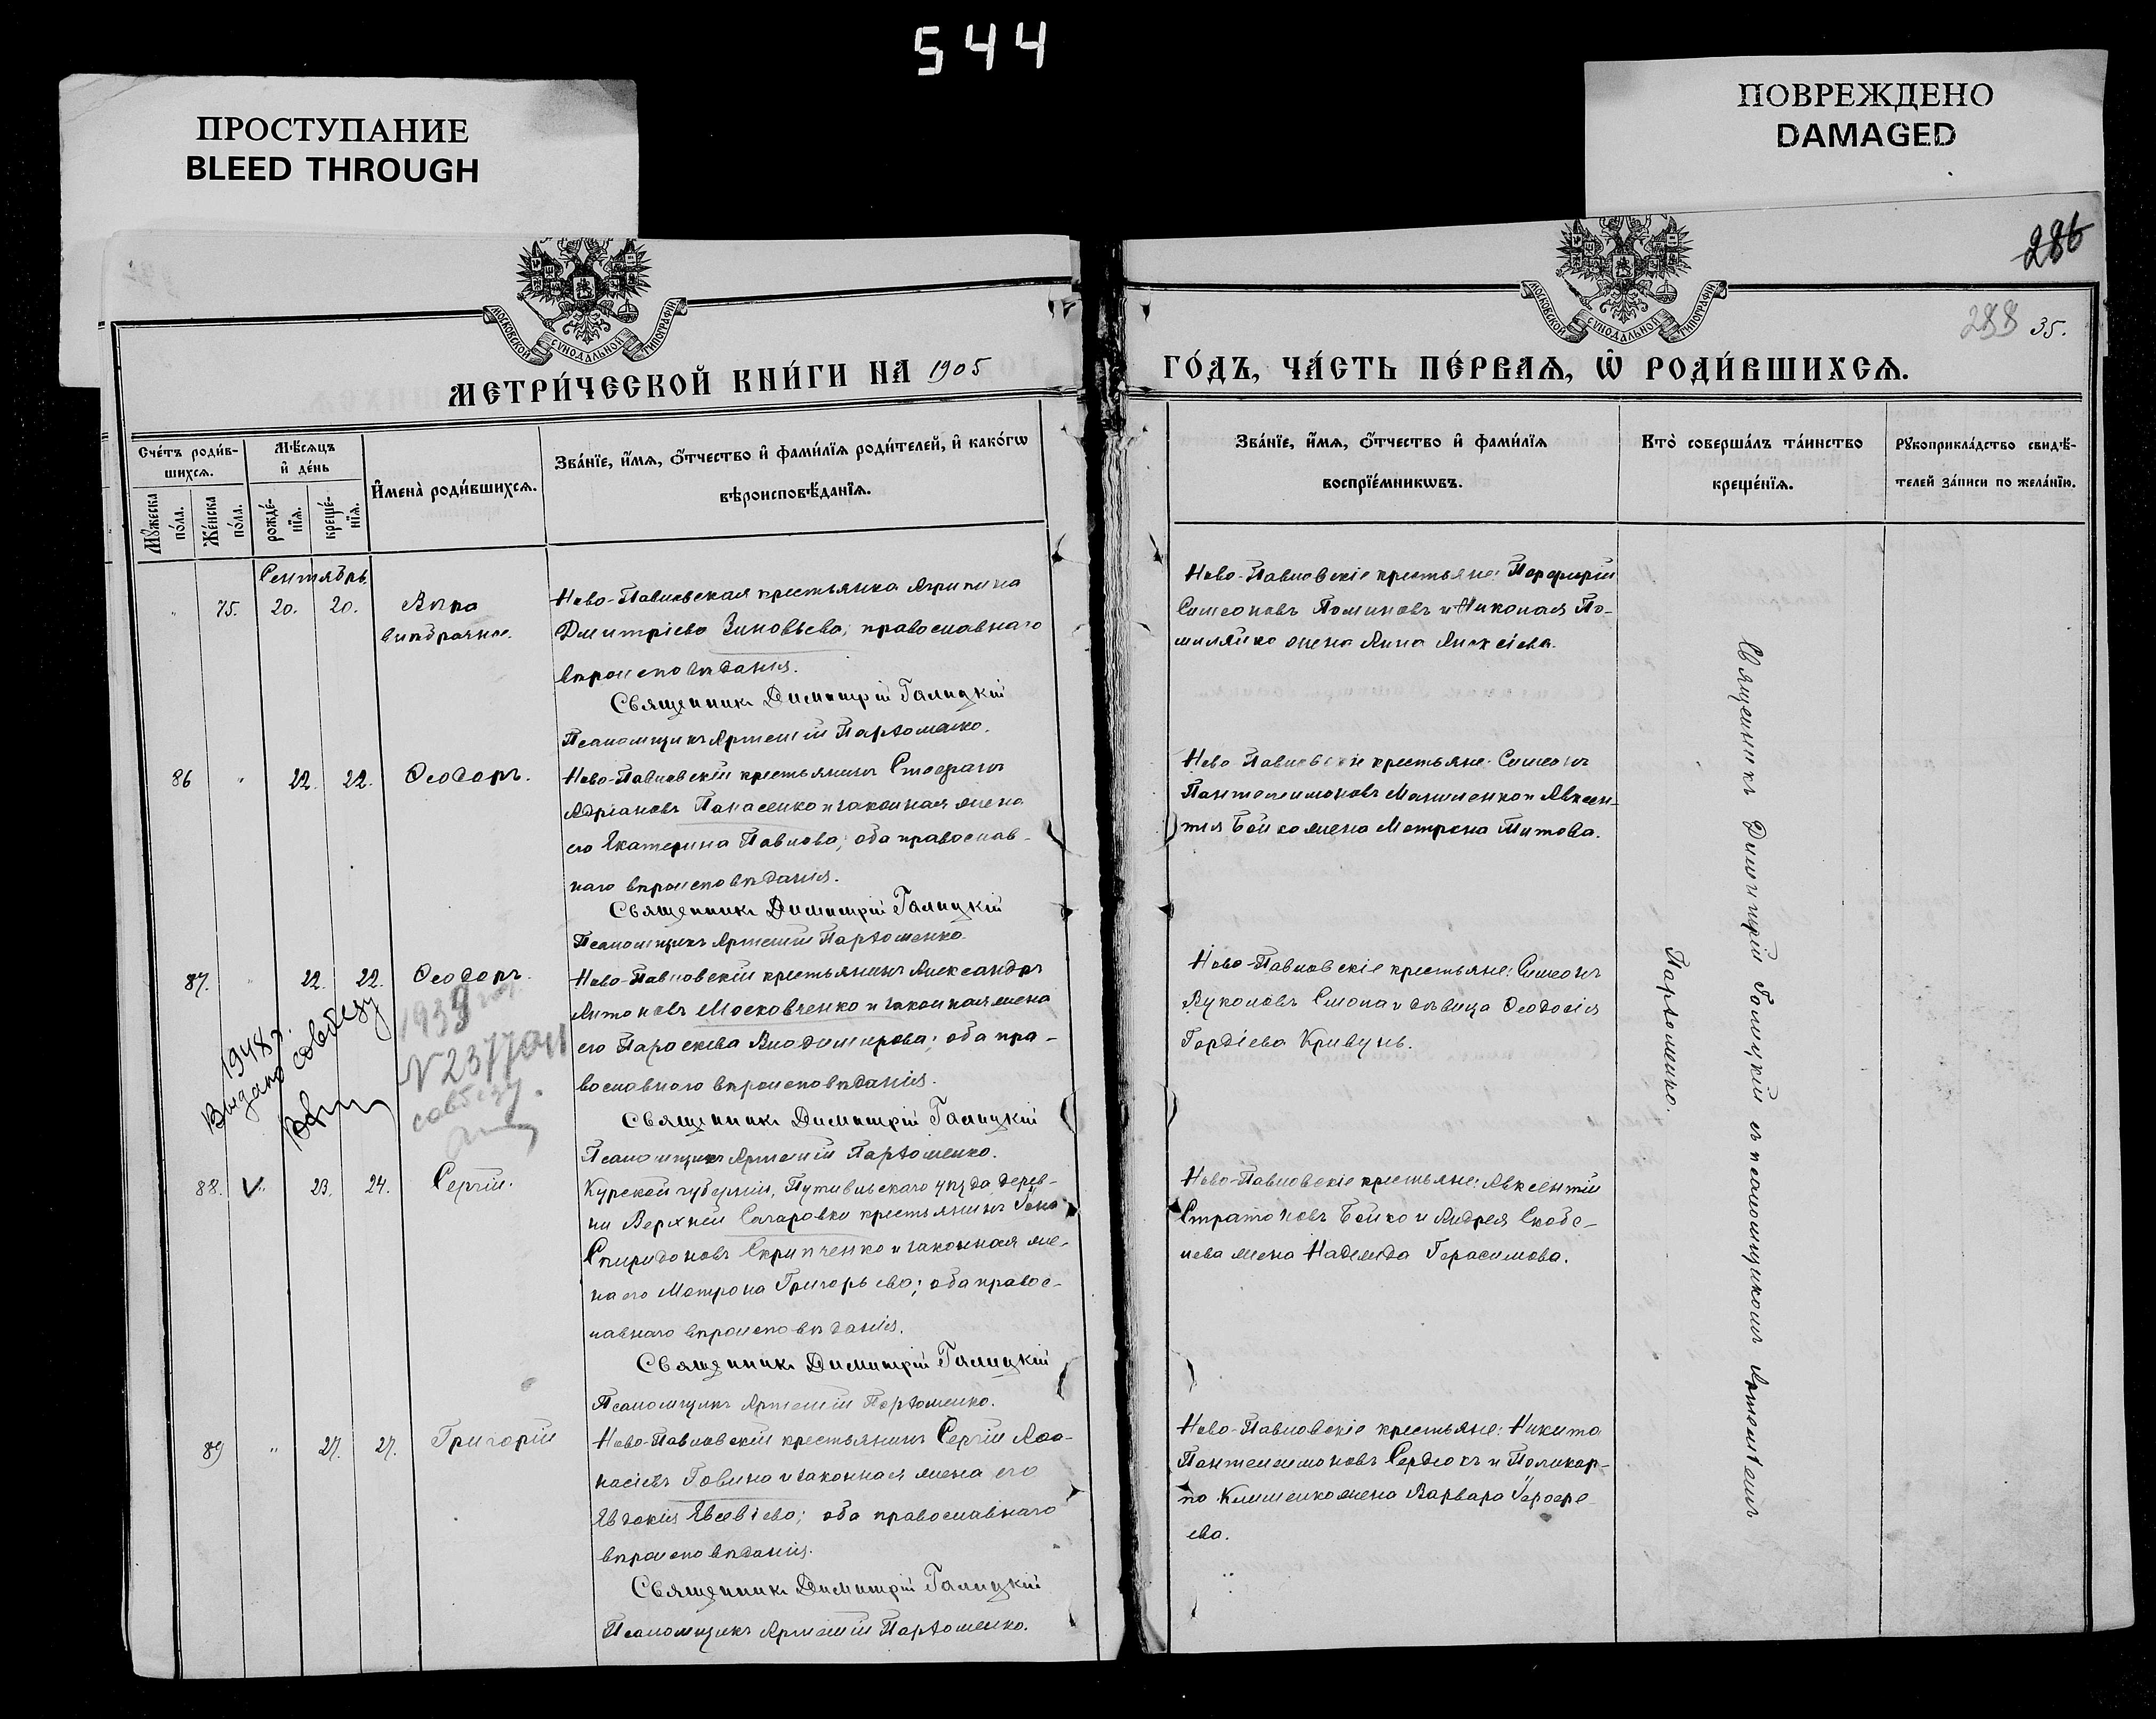 544
ПРОСТУПАНИЕ
BLEED THROUGH
ПОВРЕЖДЕНО
DAMAGED
286
288 35.
МОСКОВСКОЙ СѴНОДАЛЬНОЙ ТИПОГРАФІИ
МОСКОВСКОЙ СѴНОДАЛЬНОЙ ТИПОГРАФІИ
МЕТРИ́ЧЕСКОЙ КНИ́ГИ НА 1905
ГО́ДЪ, ЧА́СТЬ ПЕ́РВАѦ, Ѡ҆ РОДИ́ВШИХСѦ.
Сче́тъ роди́в-
шихсѧ.
Мꙋ́жеска по́ла.
Же́нска по́ла.
Мѣ́сѧцъ
и҆ де́нь
рожде́-
нїѧ.
креще́-
нїѧ.
И҆мена̀ роди́вшихсѧ.
Зва́нїе, и҆́мѧ, ѻ҆́тчество и҆ фами́лїѧ роди́телей, и҆ како́гѡ
вѣроисповѣ́данїѧ.
Зва́нїе, и҆́мѧ, ѻ҆́тчество и҆ фами́лїѧ
воспрїе́мникѡвъ.
Кто̀ соверша́лъ та́инство
креще́нїѧ.
Рꙋкоприкла́дство свидѣ́-
телей за́писи по жела́нїю.
Сентябрь
" 75. 20. 20. Анна
внѣбрачное.
Ново-Павловская крестьянка Агрипина
Дмитріева Зиновьева; православнаго
вѣроисповѣданія.
Священникъ Димитрій Галицкій
Псаломщикъ Артемій Пархоменко.
Ново-Павловскіе крестьяне: Порфирій
Симеоновъ Логвиновъ и Николая По-
жена Анна Алексіева.
86 " 22. 22. Ѳеодоръ.
Ново-Павловскій крестьянинъ Стефанъ
Адріановъ Панасенко и законная жена
его Екатерина Павлова; оба православ-
наго вѣроисповѣданія.
Священникъ Димитрій Галицкій
Псаломщикъ Артемій Пархоменко.
Ново-Павловскіе крестьяне: Симеонъ
Пантелеимоновъ и Авксен-
тія Бойко жена Матрона Титова.
87. " 22. 22. Ѳеодоръ.
Ново-Павловскій крестьянинъ Александръ
Антоновъ Московченко и законная жена
его Параскева Владимирова; оба пра-
вославнаго вѣроисповѣданія.
Священникъ Димитрій Галицкій
Псаломщикъ Артемій Пархоменко.
Ново-Павловскіе крестьяне: Симеонъ
Вуколовъ Смола и дѣвица Ѳеодосія
Гордіева Кривунь.
1948 г.
Выдано собесу
1939
собесу.
88. 23. 24. Сергій.
Курской губерніи, Путивльскаго уѣзда дерев-
ни Верхней Сагаровки крестьянинъ Іона
Спиридоновъ Скрипченко и законная же-
на его Матрона Григорьева; оба правос-
лавнаго вѣроисповѣданія.
Священникъ Димитрій Галицкій
Псаломщикъ Артемій Пархоменко.
Ново-Павловскіе крестьяне: Авксентій
Стратоновъ Бойко и Андрея Скобе-
лева жена Надежда Герасимова.
89 " 27. 27. Григорій
Ново-Павловскій крестьянинъ Сергій Аѳа-
насіевъ Говина и законная жена его
Евдокія Евсевіева; оба православнаго
вѣроисповѣданія.
Священникъ Димитрій Галицкій
Псаломщикъ Артемій Пархоменко.
Ново-Павловскіе крестьяне: Никита
Пантелеимоновъ Сердюкъ и Поликар-
па Клименко жена Варвара
ева.
Священникъ Димитрій Галицкій съ псаломщикомъ Артеміемъ
Пархоменко.